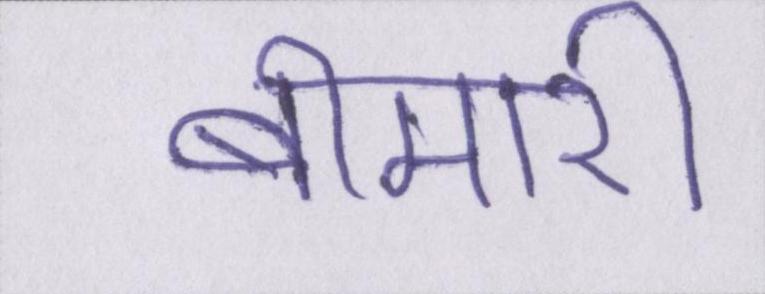 बीमारी